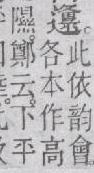 此依韵會
邍。各本作高
隰。鄭云。下平